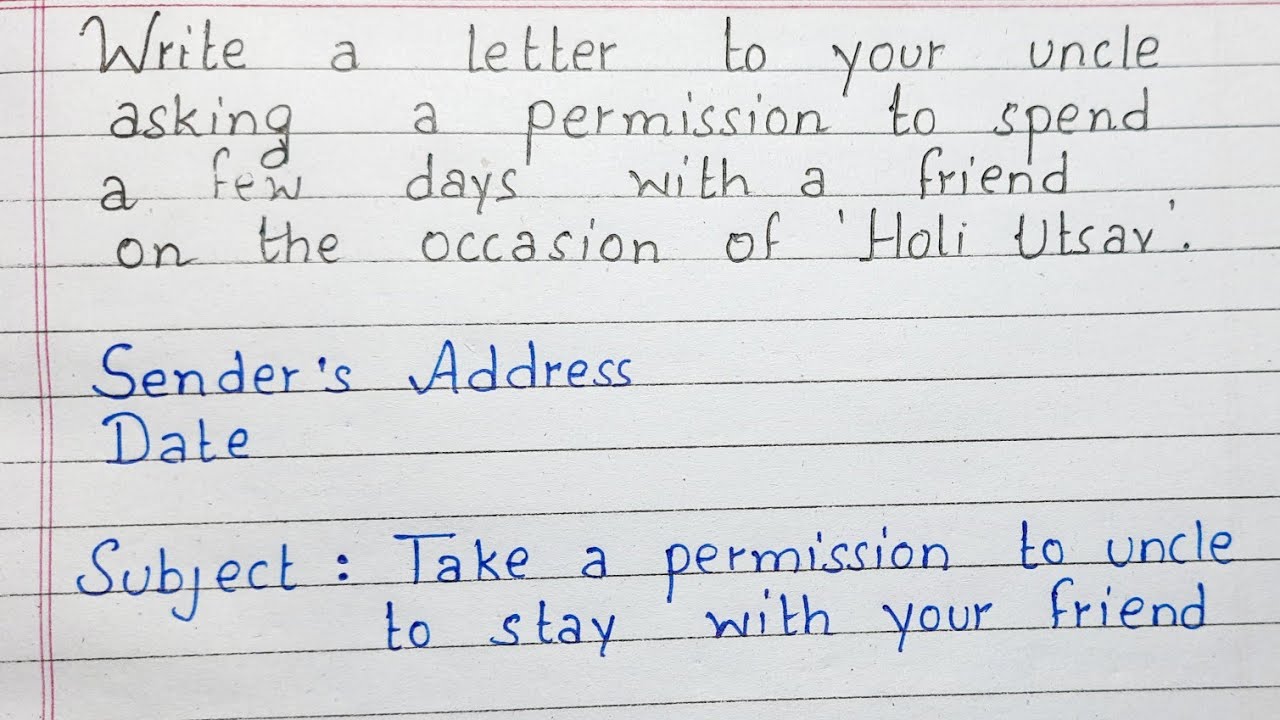 Write a letter to your uncle
asking a permission to spend
a few days with a friend
on the occasion of 'Holi Utsav'.
Sender's Address
Date
Subject : Take a permission to uncle
to stay with your friend